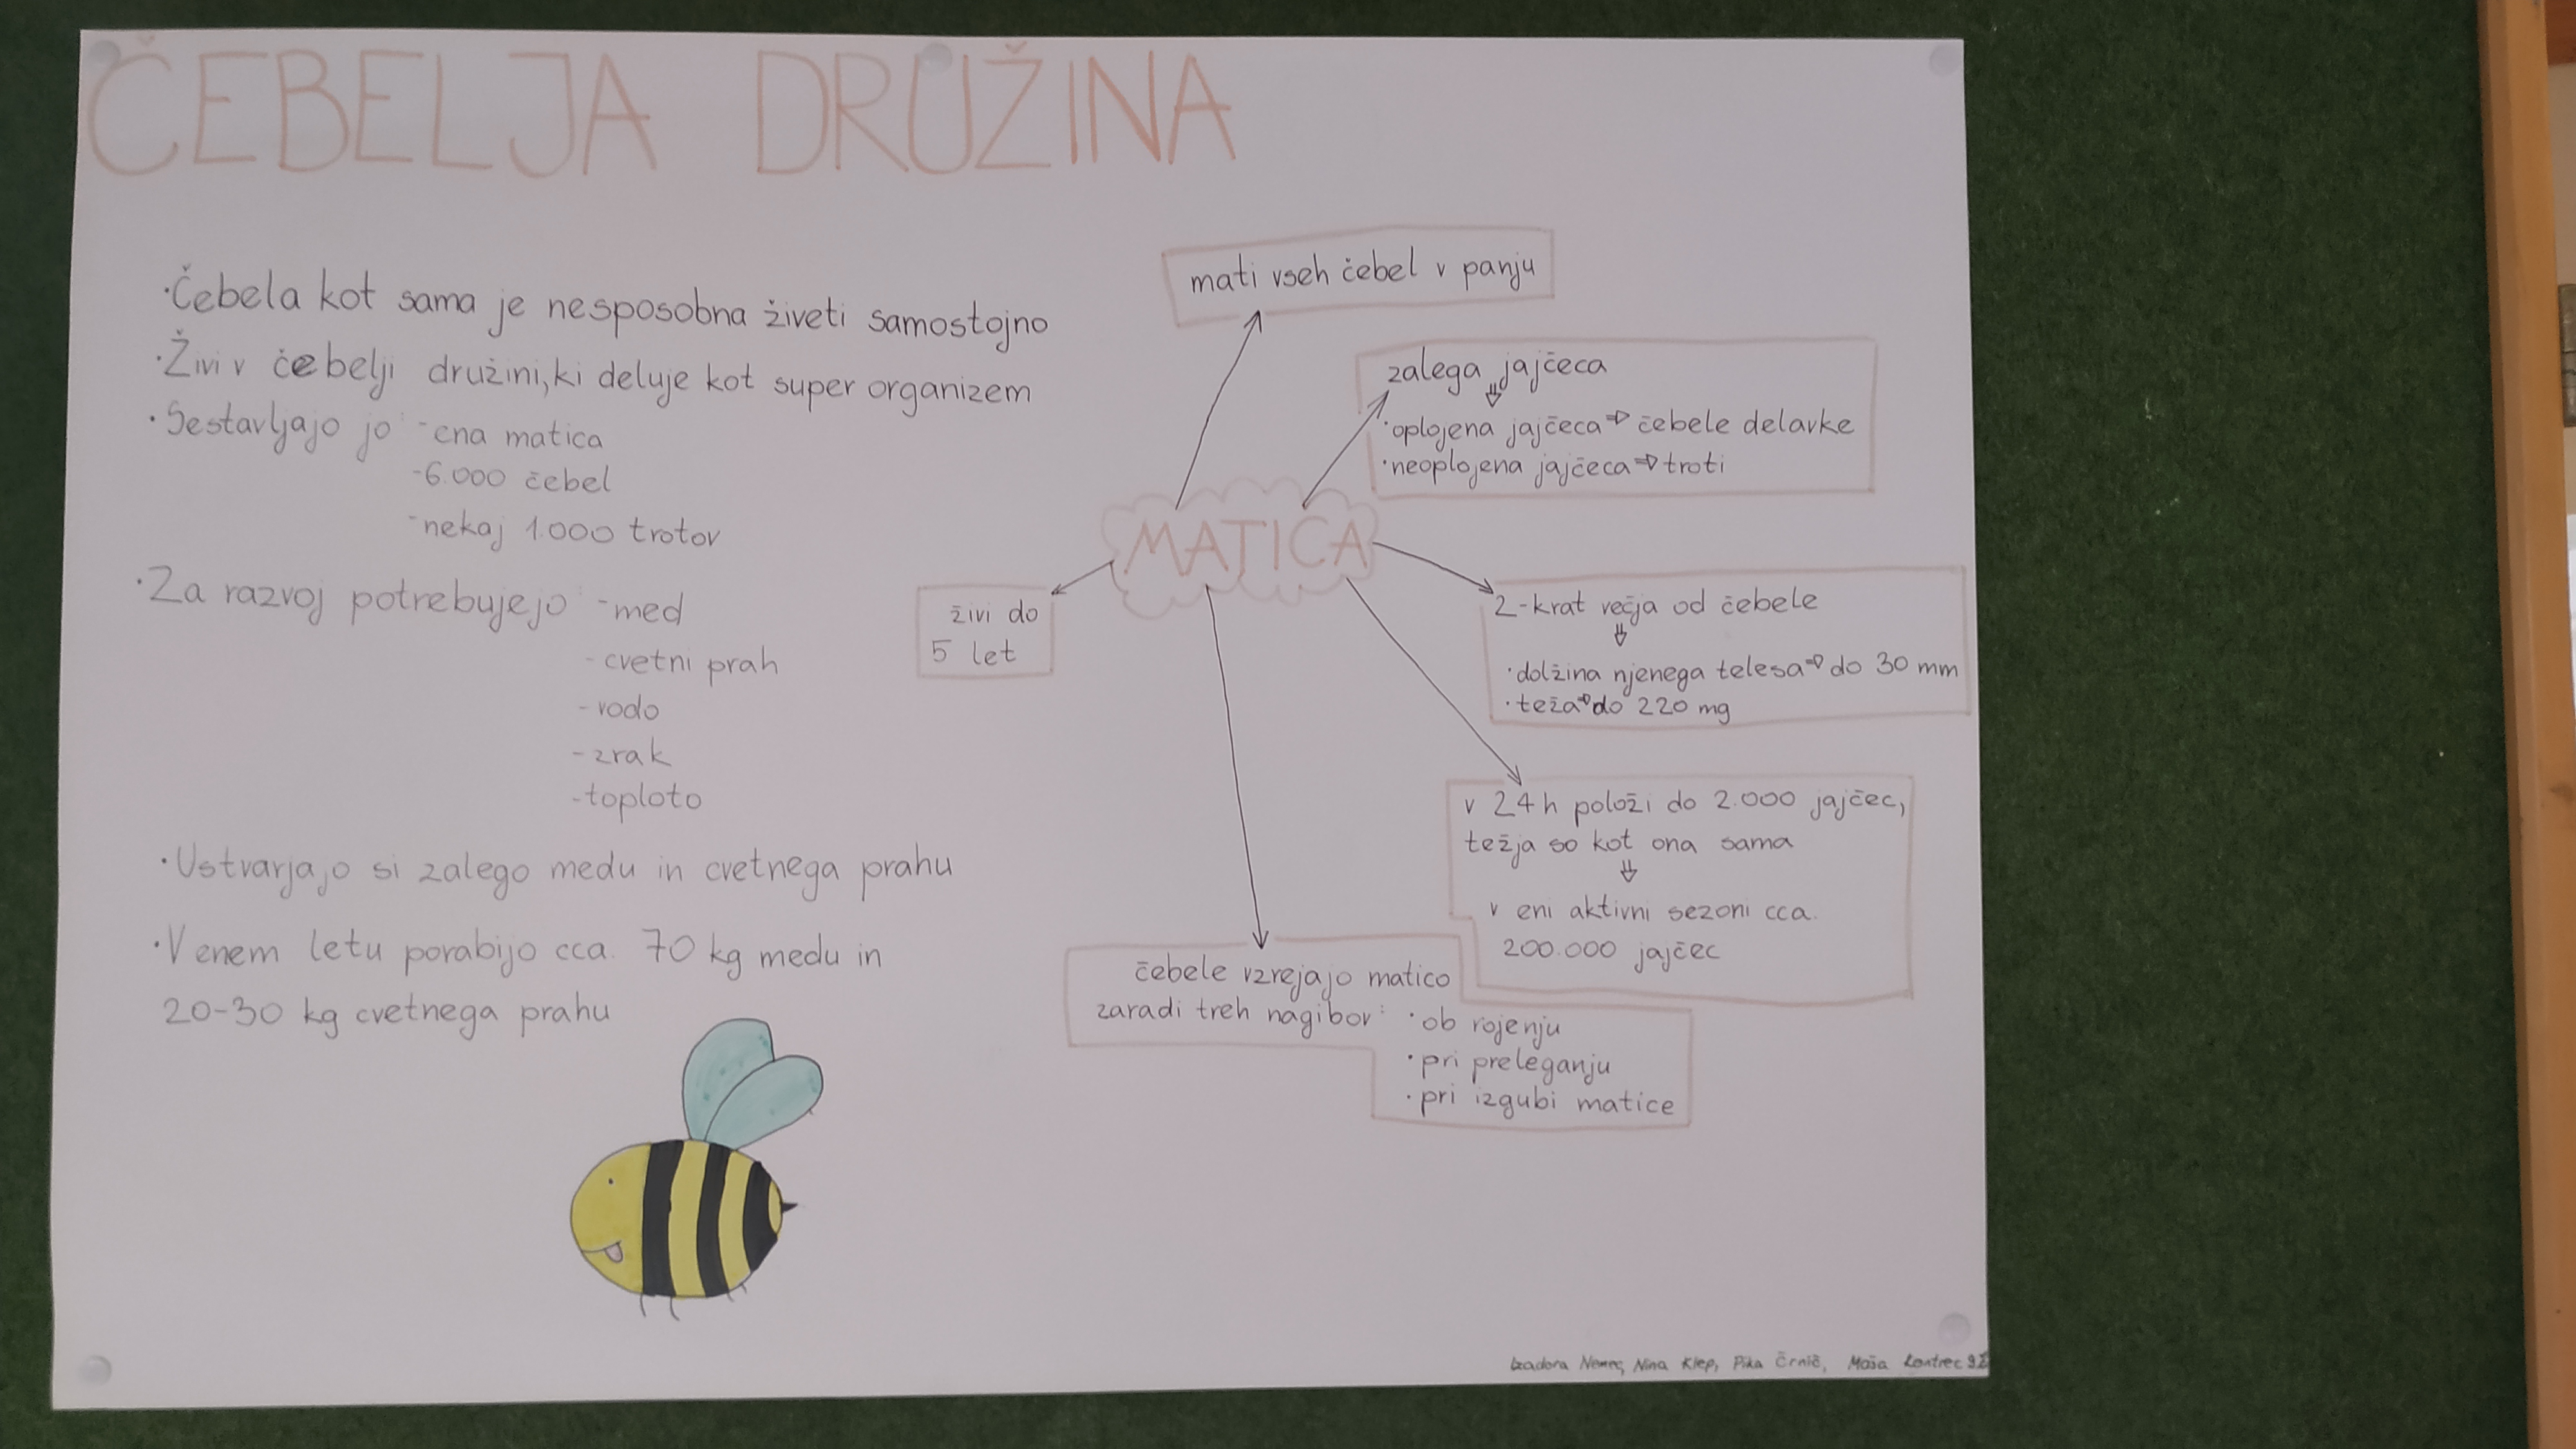 ČEBELJA DRUŽINA
·Čebela kot sama je nesposobna živeti samostojno
·Živi v čebelji družini, ki deluje kot super organizem
·Sestavljajo jo: -ena matica
-6.000 čebel
-nekaj 1.000 trotov
·Za razvoj potrebujejo: -med
-cvetni prah
-vodo
-zrak
-toploto
·Ustvarjajo si zalego medu in cvetnega prahu
·V enem letu porabijo cca. 70 kg medu in
20-30 kg cvetnega prahu
MATICA
mati vseh čebel v panju
zalega jajčeca
⇓
·oplojena jajčeca⇒ čebele delavke
·neoplojena jajčeca⇒ troti
2-krat večja od čebele
⇓
·dolžina njenega telesa⇒ do 30 mm
·teža⇒do 220 mg
v 24h položi do 2.000 jajčec,
težja so kot ona sama
⇓
v eni aktivni sezoni cca.
200.000 jajčec
čebele vzrejajo matico
zaradi treh nagibov: ·ob rojenju
·pri preleganju
·pri izgubi matice
živi do
5 let
Izadora Nemec, Nina Klep, Pika Črnič, Maša Kontrec